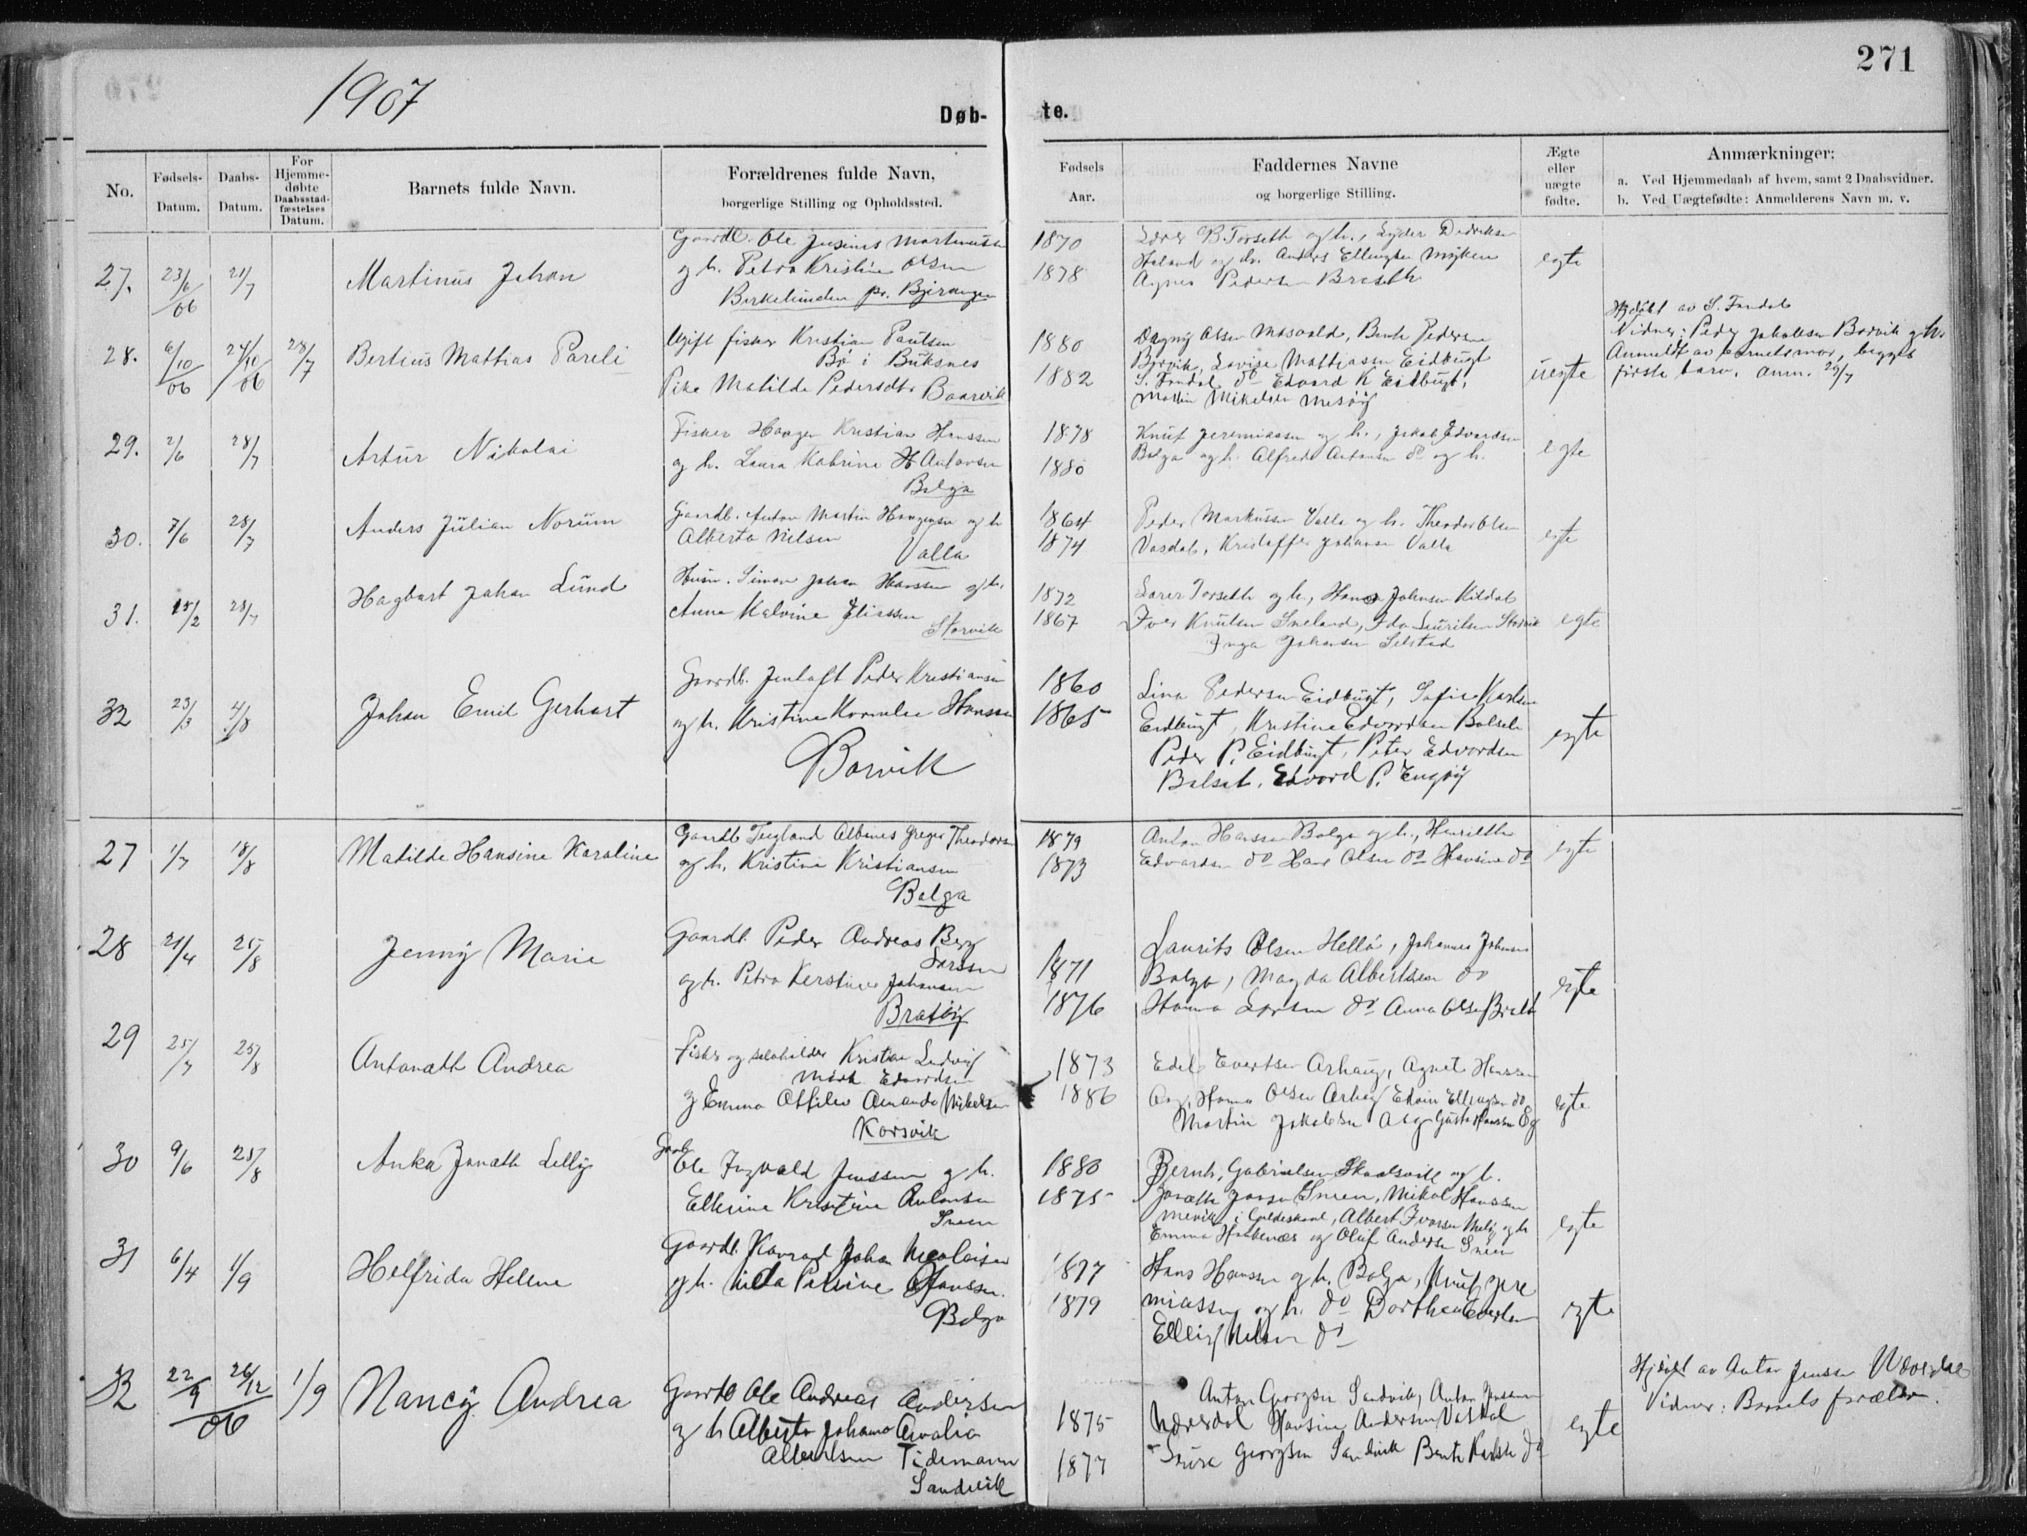 271
1907
Døb-
te.
No.
Fødsels-
Datum.
Daabs-
Datum.
For
Hjemme-
døbte
Daabsstad-
fæstelses
Datum.
Barnets fulde Navn.
Forældrenes fulde Navn,
borgerlige Stilling og Opholdssted.
Fødsels
Aar.
Faddernes Navne
og borgerlige Stilling.
Ægte
eller
uægte
fødte.
Anmærkninger:
a. Ved Hjemmedaab af hvem, samt 2 Daabsvidner.
b. Ved Uægtefødte: Anmelderens Navn m. v.
27. 23/6 06 21/7 Martinus Johan
Gaardb. Ole
og h. Petra Kristine Olsen
Birkelunden pr. Bjerangen
1870
1878
B. Torseth og h., Lyder Didriksen
Haland og h. Anders Ellingsen Myken
Agnes Pedersen Braseth
egte
28. 6/10 06 24/10 06 28/7 Bertius Mathias Pareli
Ugift fisker Kristian Paulsen
Bø i Buksnes
Pike Matilde Pedersdtr. Baarvik
1880
1882
Dagny Olsen Masvold, Bente Pedersen
Borvik, Lovise Mathiassen Eidbugt
S. Fondal do Edvard K Eidbugt,
Martin Mikelsen Mesøy
uegte
Hjdøbt av S. Fondal
Vidner: Peder Jakobsen Borvik og h.
Anmeldt av barnets mor, begges
første barn. anm. 29/7
29. 2/6 28/7 Artur Nikolai
Fisker Haagen Kristian Hanssen
og h. Laura Katrine H Antonsen
Bolga
1878
1880
Knut Jeremiassen og h., Jakob Edvardsen
Bolga og h. Alfred Antonsen do og h.
egte
30. 7/6 28/7 Anders Julian Norum
Gaardb. Anton Martin Haagensen og h
Alberta Nilsen
Valla
1864
1874
Peder Markussen Valla og h. Theodor Olsen
Vasdal, Kristoffer Johansen Valla
egte
31. 15/2 28/7 Hagbart Johan Lund
Husm. Simon Johan Hanssen og h.
Anna Kalvine Eliassen
Storvik
1872
1867
Lorer Torseth og h, Hans Johnsen Kildal
Iver Knutsen Sneland, Ida Lauritsen Storvik
Inga Johansen Selstad
egte
32 23/3 4/8 Johan Emil Gerhart
Gaardb. Jentoft Peder Kristiansen
og h. Kristine Kornelie Hanssen
Borvik
1860
1865
Lina Pedersen Eidbugt, Sofie Karlsen
Eidbugt, Kristine Edvardsen Balsal
Peder P. Eidbugt, Peter Edvardsen
Balsat, Edvard P. Engøy
egte
27 1/7 18/8 Matilde Hansine Karoline
Gaardb Albenes Greger Theodorsen
og h. Kristine Kristiansen
Bolga
1879
1873
Anton Hanssen Bolga og h., Henrikke
Edvardsen do Hans Olsen do Hansine do
egte
28 21/4 25/8 Jenny Marie
Gaardb. Peder Andreas Berg
Larssen
og h. Petra Kerstine Johansen
Bratøy
1871
1876
Laurits Olsen Helle, Johannes Johansen
Bolga, Magda Albertsen do
Hanna Larsen do Anna Olsen
egte
29 25/7 25/8 Antonette Andrea
Fisker og Kristian Ludvig
Edvardsen
og Emma Otilie Amanda Mikelsen
Korsvik
1873
1886
Edel Evertsen Arhaug, Agnete Hanssen
Hanna Olsen Arhaug Edvin Ellingsen do
Martin Jakobsen
egte
30 9/6 25/8 Anka Jonette Lelly
Gaardb
Ole Ingvald Jenssen og h.
Elterine Kristine Antonsen
Sneen
1880
1875
Bernh. Gabrielsen Skaalsvik og h.
Jonette Jonsen Sneen, Mikal Hanssen
Mevik i Gildeskaal, Albert Ivarsen Meløy og h
Emma Halsenes og Oluf Andersen Sneen
egte
31 6/4 1/9 Helfrida Helene
Gaardb. Konrad Johan Nicolaisen
og h. Hilda Petrine Hanssen.
Bolga
1877
1879
Hans Hanssen og h. Bolga, Knut Jere
miassen og h. do Dorthea Evertsen
Elling Nilsen do
egte
32 22/9 06 26/12 1/9 Nancy Andrea
Gaardb Ole Andreas Andersen
og h Alberta Johanna Amalia
Albertsen Tidemann
Sandvik
1875
1877
Anton Georgsen Sandvik, Anton Jenssen
Næverdal Hansine Andersen Vasdal
Georgsen Sandvik Bente do
egte
Hjdøbt av Anton Jenssen Næverdal
Vidner: Barnets forældre.